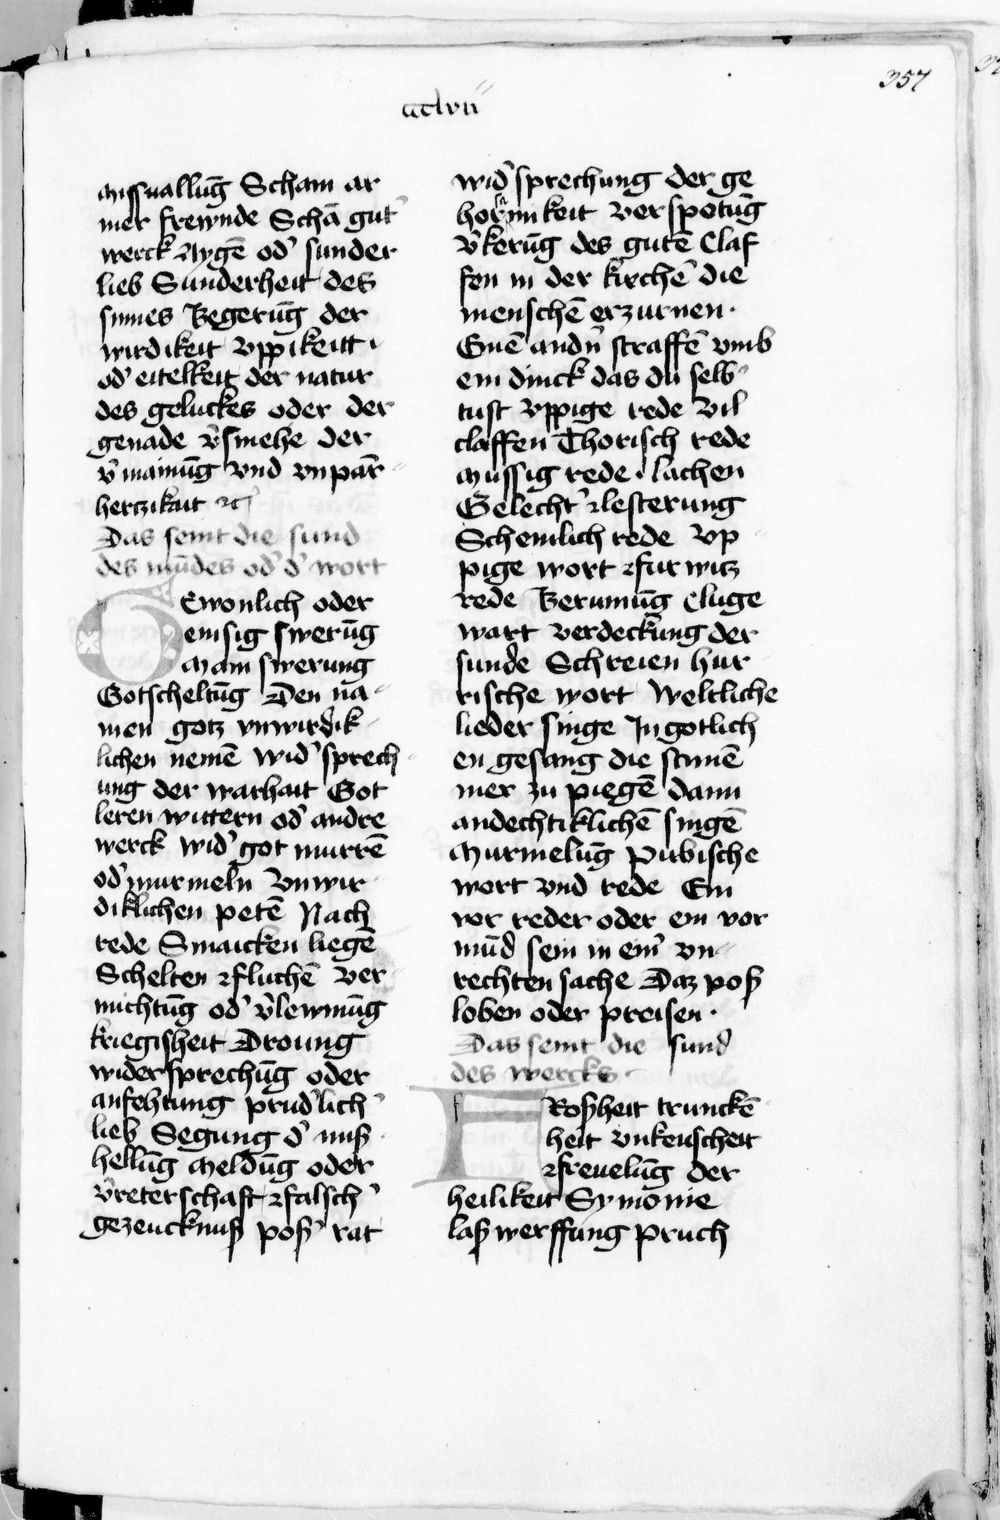 357
ccclvii
missuallūg Scham ar
mer frewnde Schā gut᾽
werck Aygē od᾽ sunder
lieb Sunderheit des
sinnes Begerūg der
wirdikeit vppikeitt ·
od᾽ eitelkeit der natur
des geluckes oder der
genade v᾽smehe der
v᾽mainūg vnd vnpar᾽
hertzikait ⁊c
Das seint die sund
des mūdes od᾽ d᾽ wort
Gewonlich oder
emsig swerūg
Main swerung
Gotscheltūg Den na
men gotz vnwirdik
lichen nemē wid᾽sprech
ung der warhait Got
leren wittern od᾽ andre
werck wid᾽ got murrē
od᾽ murmeln Vnwir
diklichen petē Nach
rede Smaicken liegē
Schelten ⁊ fluchē Ver
nichtūg od᾽ v᾽lewmūg
kriegisheit Droung
widersprechūg oder
anfehtung prud᾽lich᾽
lieb Segung d᾽ miß
hellūg Meldūg oder
v᾽reterschaft ⁊ falsch᾽
gezeucknuß poß᾽ rat
wid᾽sprechung der ge
horsamikeit Verspotūg
v᾽kerūg des gutē Claf
fen in der kirchē die
menschē erzurnen ·
Einē andn᾽ straffē vmb
ein dinck das du selb
tust Vppige rede Vil
claffen Thorisch rede
Mussig rede · lachen
Gelecht᾽ ⁊ lesterung
Schemlich rede Vp
pige wort ⁊ furwitz
rede Berumūg Cluge
wart verdeckung der
sunde Schreien hur
rische wort Weltliche
lieder singē In gotlich
en gesang die stimē
mer zu piegē dann
andechtiklichē singē
Murmelūg Pubische
wort vnd rede Ein
vor reder oder ein vor
mūd sein in eim᾽ vn
rechten sache Daz poß
loben oder preisen ·
Das seint die sund
des wercks ·
FRoßheit truncken
heit vnkeuscheit
⁊ freuelūg der
heilikeit Symonie
laß werffung pruch